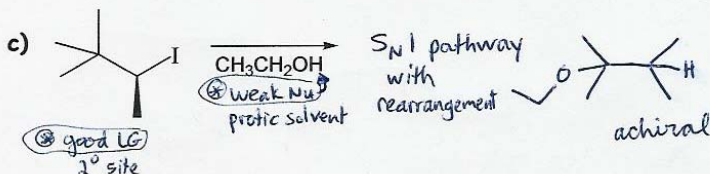 c)
I
CH₃CH₂OH
⊛ weak Nu
protic solvent
⊛ good LG
2° site
SN1 pathway
with
rearrangement
O
H
achiral